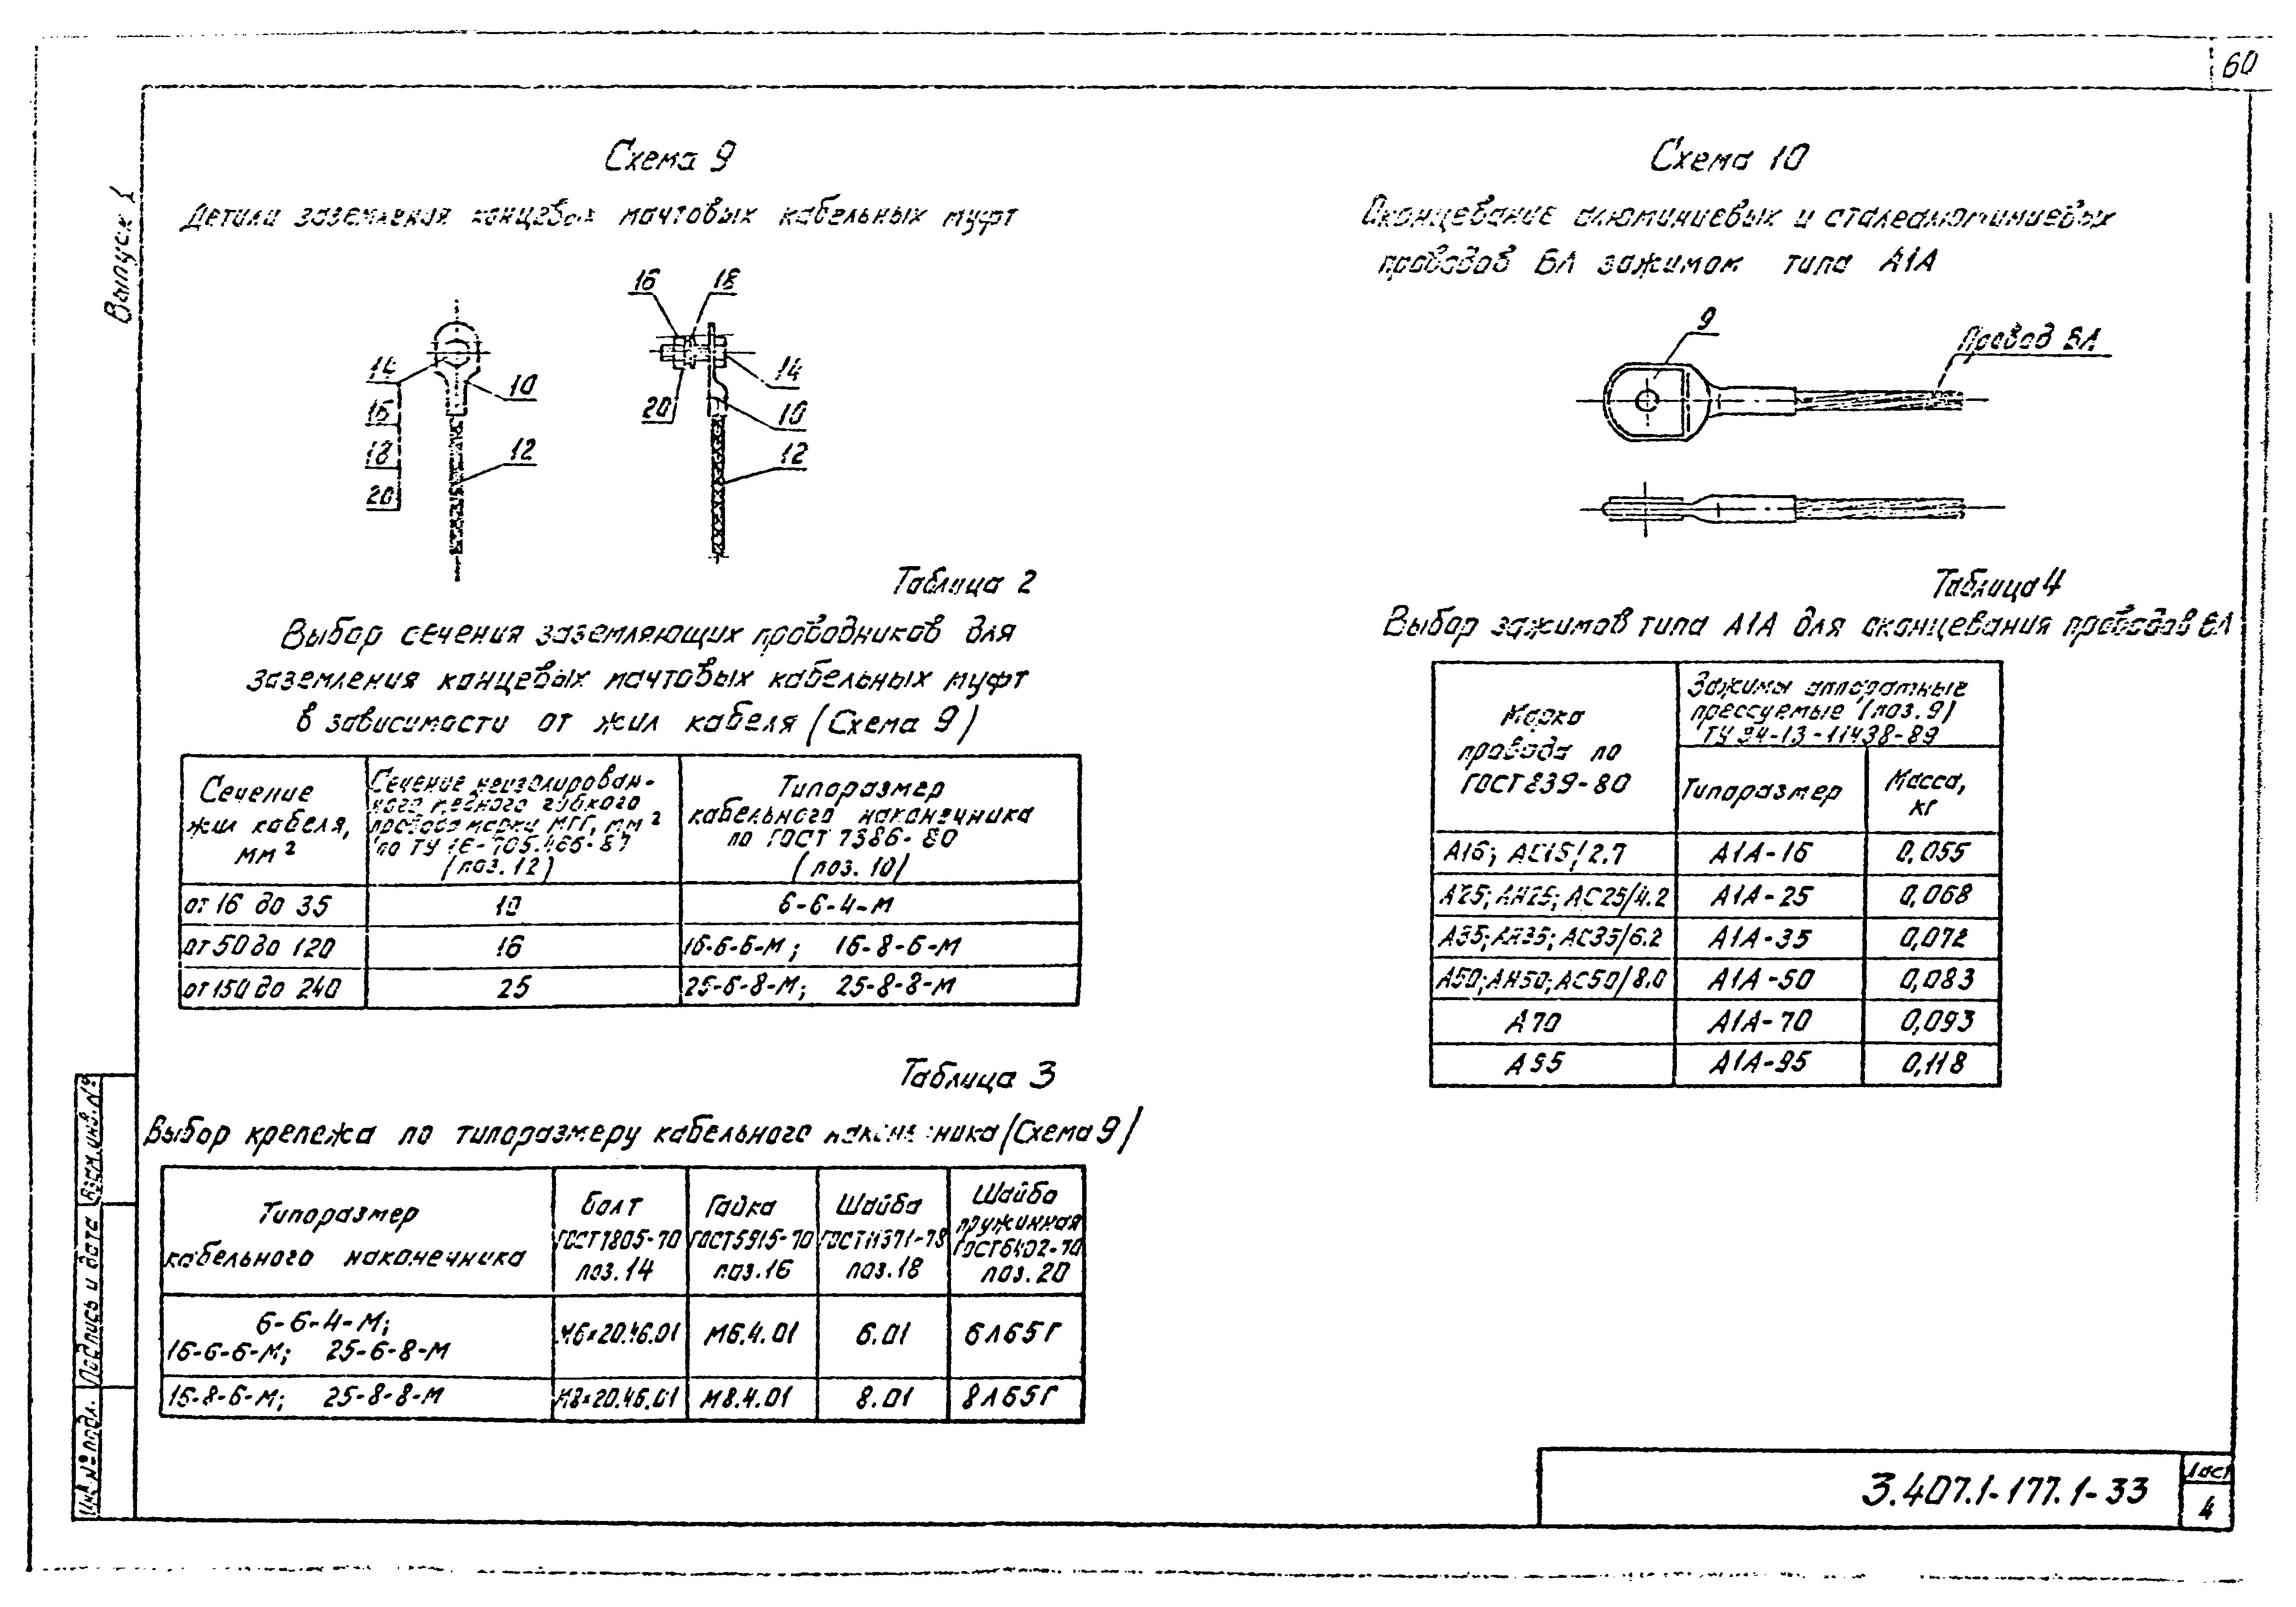 60
Выпуск 1
Схема 9
Детали заземления концевых мачтовых кабельных муфт
16
18
14
10
16
18
12
20
14
20
10
12
Таблица 2
Выбор сечения заземляющих проводников для
заземления концевых мачтовых кабельных муфт
в зависимости от жил кабеля (Схема 9)
Сечение жил кабеля, мм²
Сечение неизолирован-
ного медного гибкого
провода марки МГГ, мм²
по ТУ 16-705.466-87
(поз. 12)
Типоразмер
кабельного наконечника
по ГОСТ 7386-80
(поз. 10)
от 16 до 35 10 6-6-4-М
от 50 до 120 16 16-6-6-М; 16-8-6-М
от 150 до 240 25 25-6-8-М; 25-8-8-М
Таблица 3
Выбор крепежа по типоразмеру кабельного наконечника (Схема 9)
Типоразмер
кабельного наконечника
Болт
ГОСТ 7805-70
поз. 14
Гайка
ГОСТ 5915-70
поз. 16
Шайба
ГОСТ 11371-78
поз. 18
Шайба
пружинная
ГОСТ 6402-70
поз. 20
6-6-4-М;
16-6-6-М; 25-6-8-М М6×20.46.01 М6.4.01 6.01 6Л65Г
16-8-6-М; 25-8-8-М М8×20.46.01 М8.4.01 8.01 8Л65Г
Схема 10
Оконцевание алюминиевых и сталеалюминиевых
проводов ВЛ зажимом типа А1А
9
Провод ВЛ
Таблица 4
Выбор зажимов типа А1А для оконцевания проводов ВЛ
Марка
провода по
ГОСТ 839-80
Зажимы аппаратные
прессуемые (поз. 9)
ТУ 34-13-11438-89
Типоразмер
Масса,
кг
А16; АС16/2.7 А1А-16 0,055
А25; АН25; АС25/4.2 А1А-25 0,068
А35; АН35; АС35/6.2 А1А-35 0,072
А50; АН50; АС50/8.0 А1А-50 0,083
А70 А1А-70 0,093
А95 А1А-95 0,118
Взам. инв. №
Подпись и дата
Инв. № подл.
3.407.1-177.1-33
Лист
4